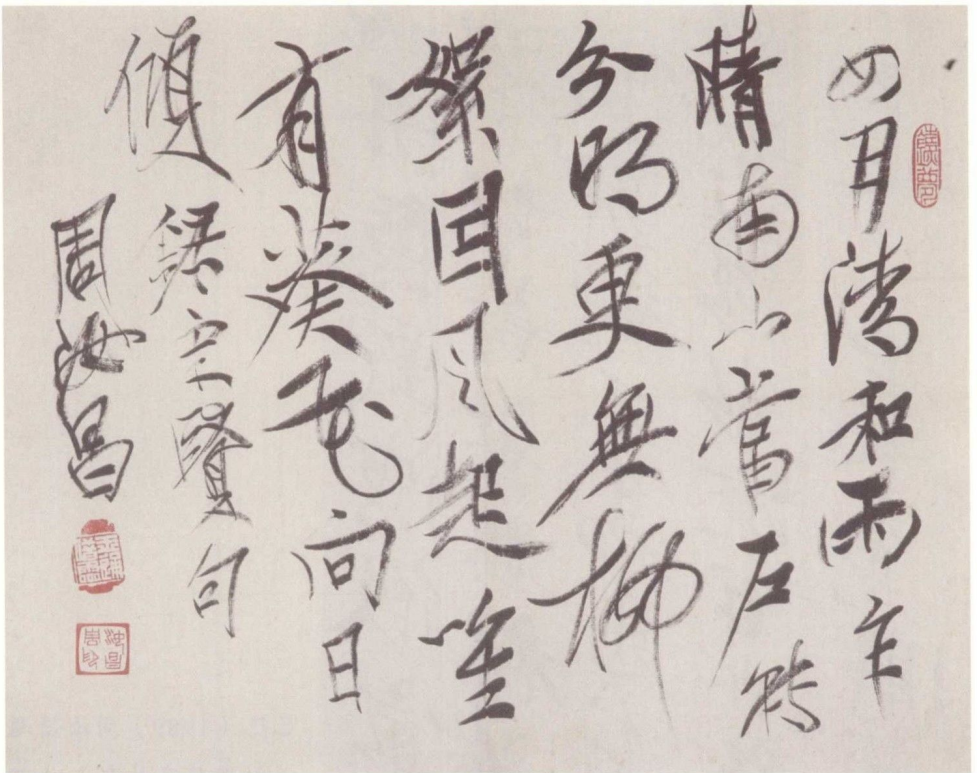 四月清和雨乍
晴南山當戶轉
分明更無柳
絮因風起唯
有葵花向日
傾 錄宋賢句
周汝昌